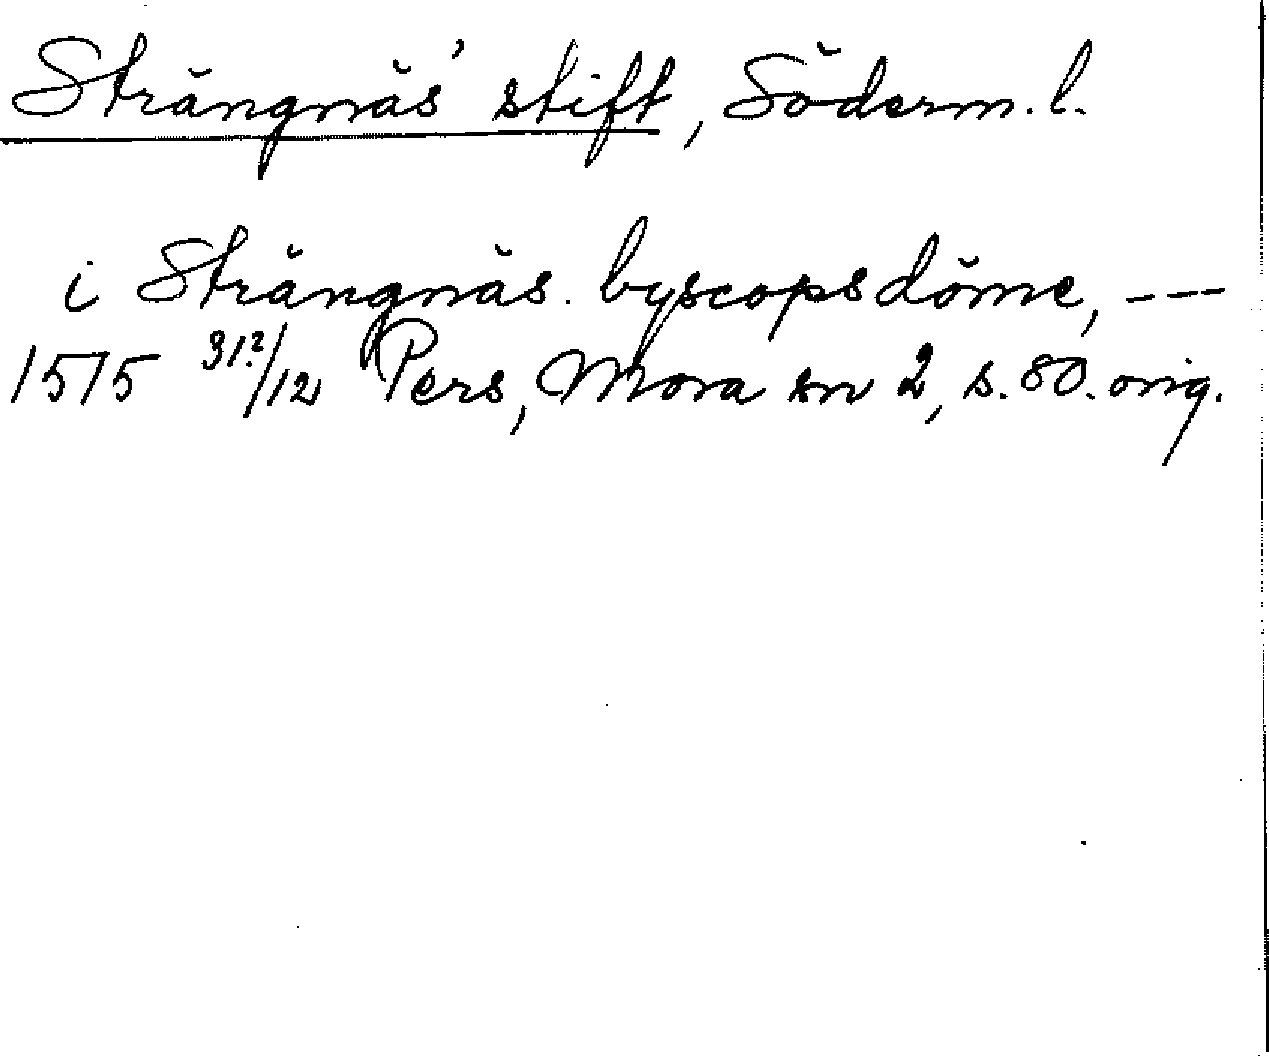 Strängnäs' stift, Söderm. l.
i Strängnäs. byscopsdöme, ---
1575 31?/12 Pers, Mora sn 2, s. 80. orig.